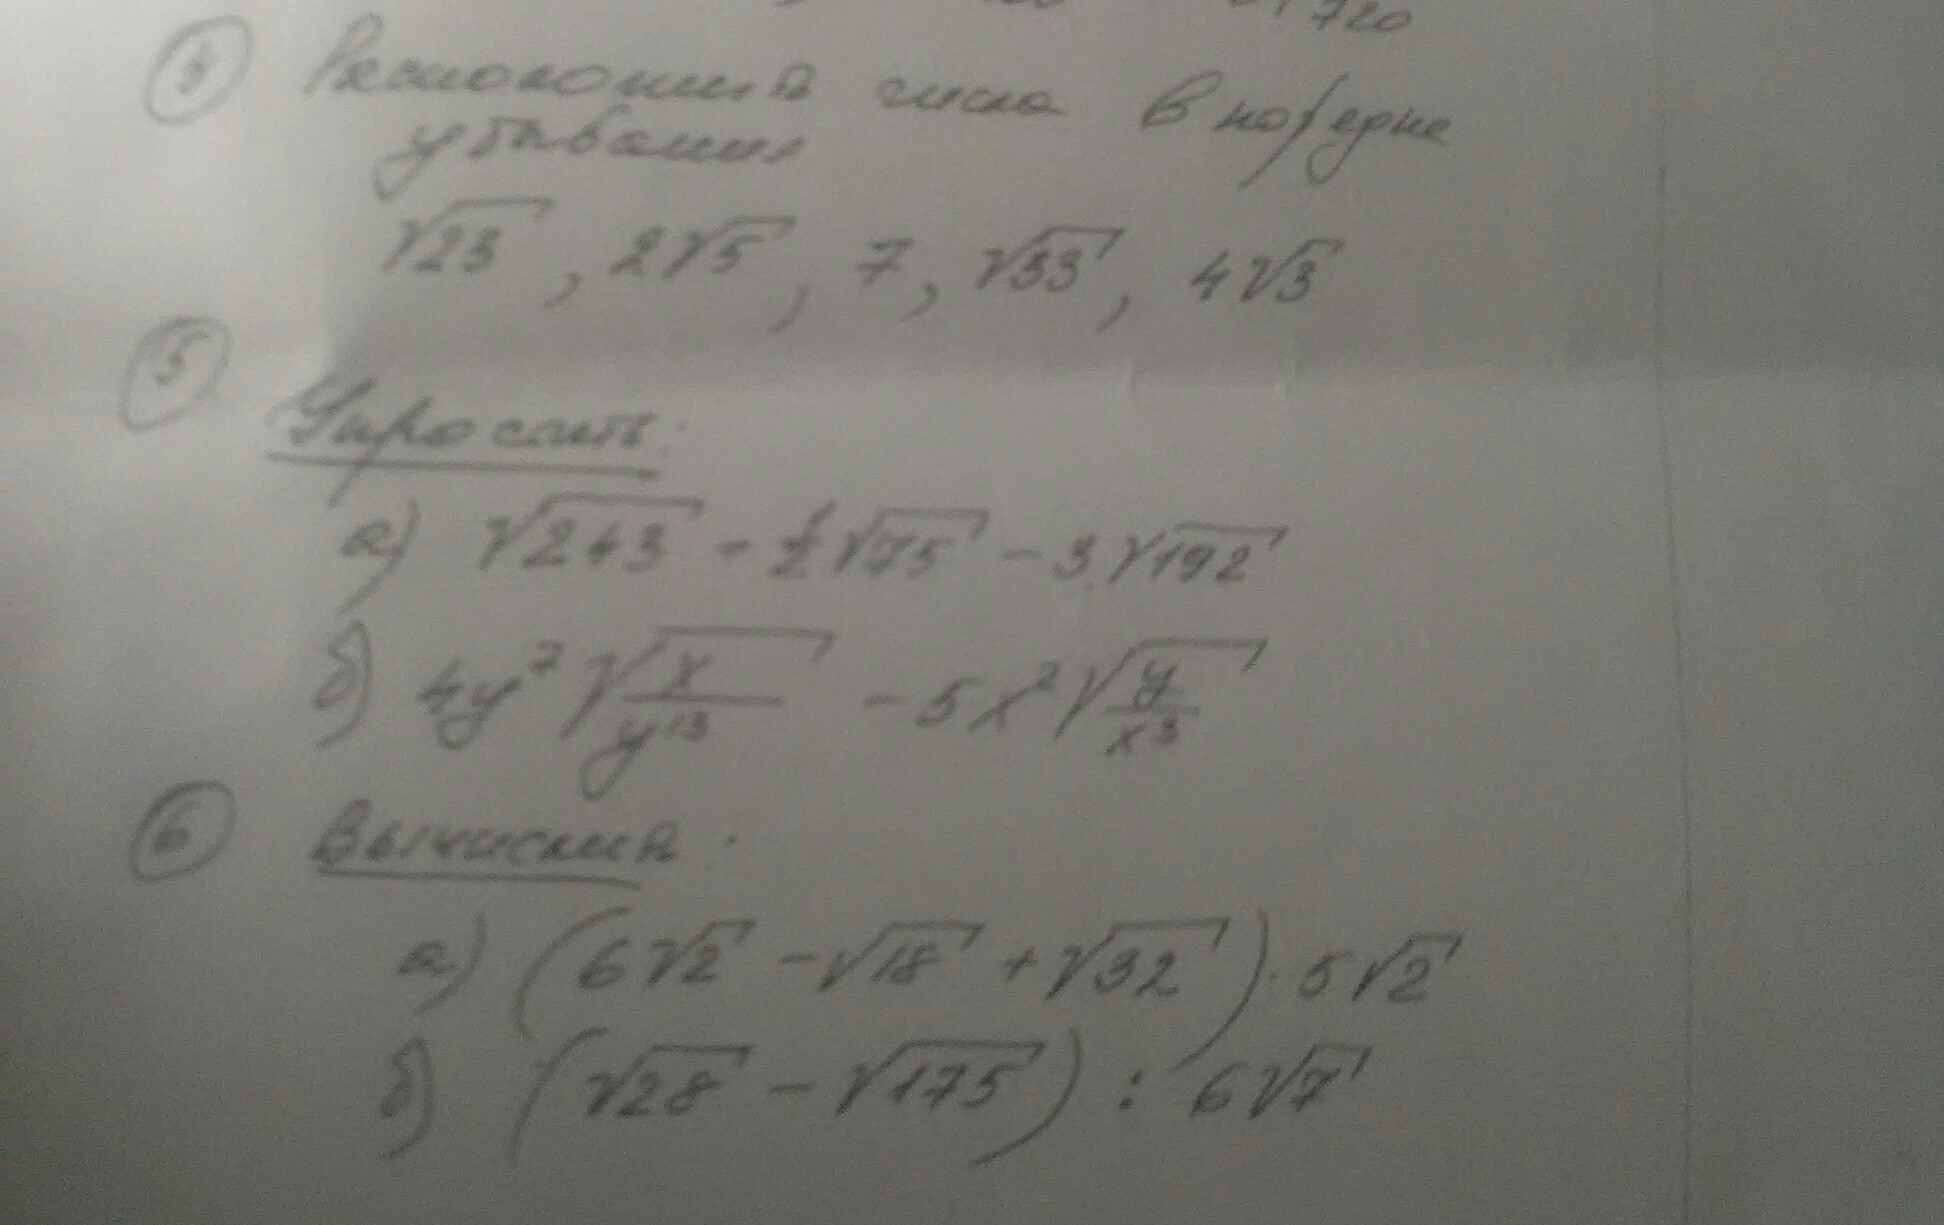 720
④ Расположить числа в порядке
убывания
√23 , 2√5 , 7 , √33 , 4√3
⑤
Упростить:
а) √243 - ½√75 - 3√192
б) 4y⁷√(x/y¹³) - 5x²√(y/x³)
⑥ Вычислить:
а) (6√2 - √18 + √32) · 5√2
б) (√28 - √175) : 6√7